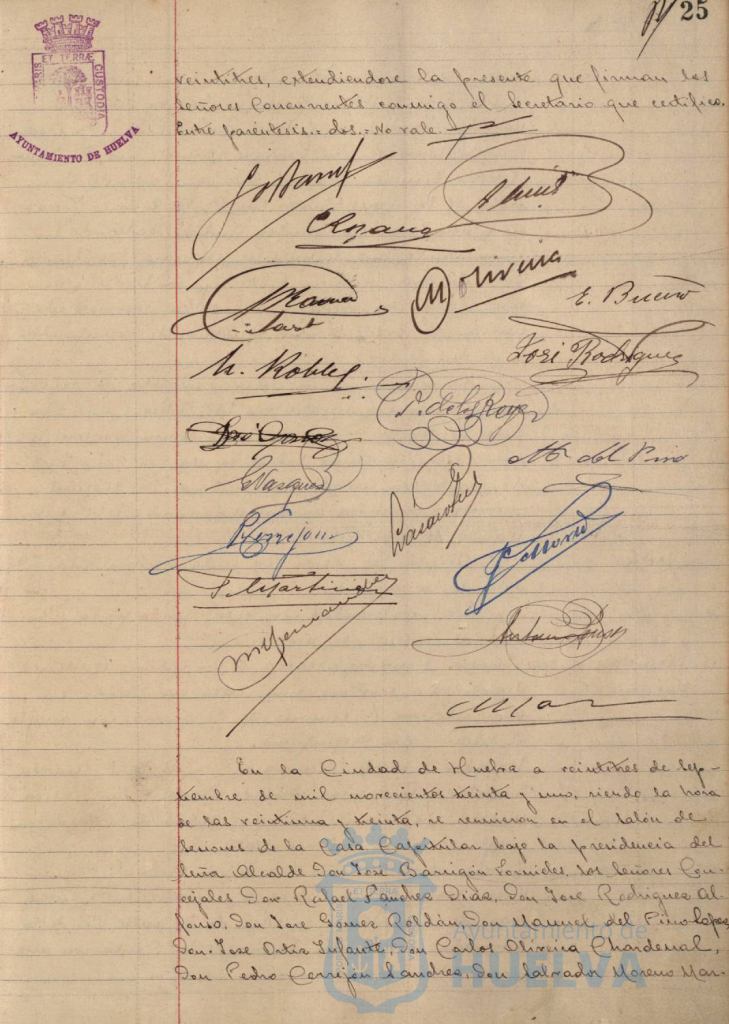 25
ET TERRÆ
CUSTODIA
AYUNTAMIENTO DE HUELVA
veintitres, extendiendose la presente que firman los
señores Concurrentes conmigo el Secretario que certifico.
Entre parentesis.=dos.=No vale.
C Rozano
Oliveira
E. Bueno
M. Robles.
José Rodriguez
P. de la Roya
E Vazquez
M. del Pino
P. Cerrejon
S Moreno
F. Martinez
M Hernandez
En la Ciudad de Huelva a veintitres de Sep-
tiembre de mil novecientos treinta y uno, siendo la hora
de las veintiuna y treinta, se reunieron en el salón de
Sesiones de la Casa Capitular bajo la presidencia del
Señor Alcalde Don José Barrigón Fornieles, los Señores Con-
cejales Don Rafael Sanchez Diaz, Don José Rodriguez Al-
fonso, Don José Gómez Roldán, Don Manuel del Pino Lopez,
Don José Ortiz Infante, Don Carlos Oliveira Chardenal,
Don Pedro Cerrejón Sanchez, Don Salvador Moreno Mar-
Ayuntamiento de
HUELVA